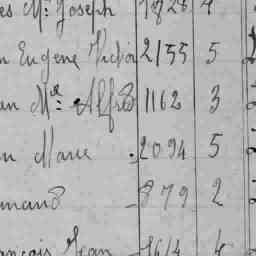 es Mce Joseph 1828 4
n Eugène Victor 2155 5
an Mel Alfred 1162 3
n Marie 2094 5
mand 879 2
ançois Jean 1614 4